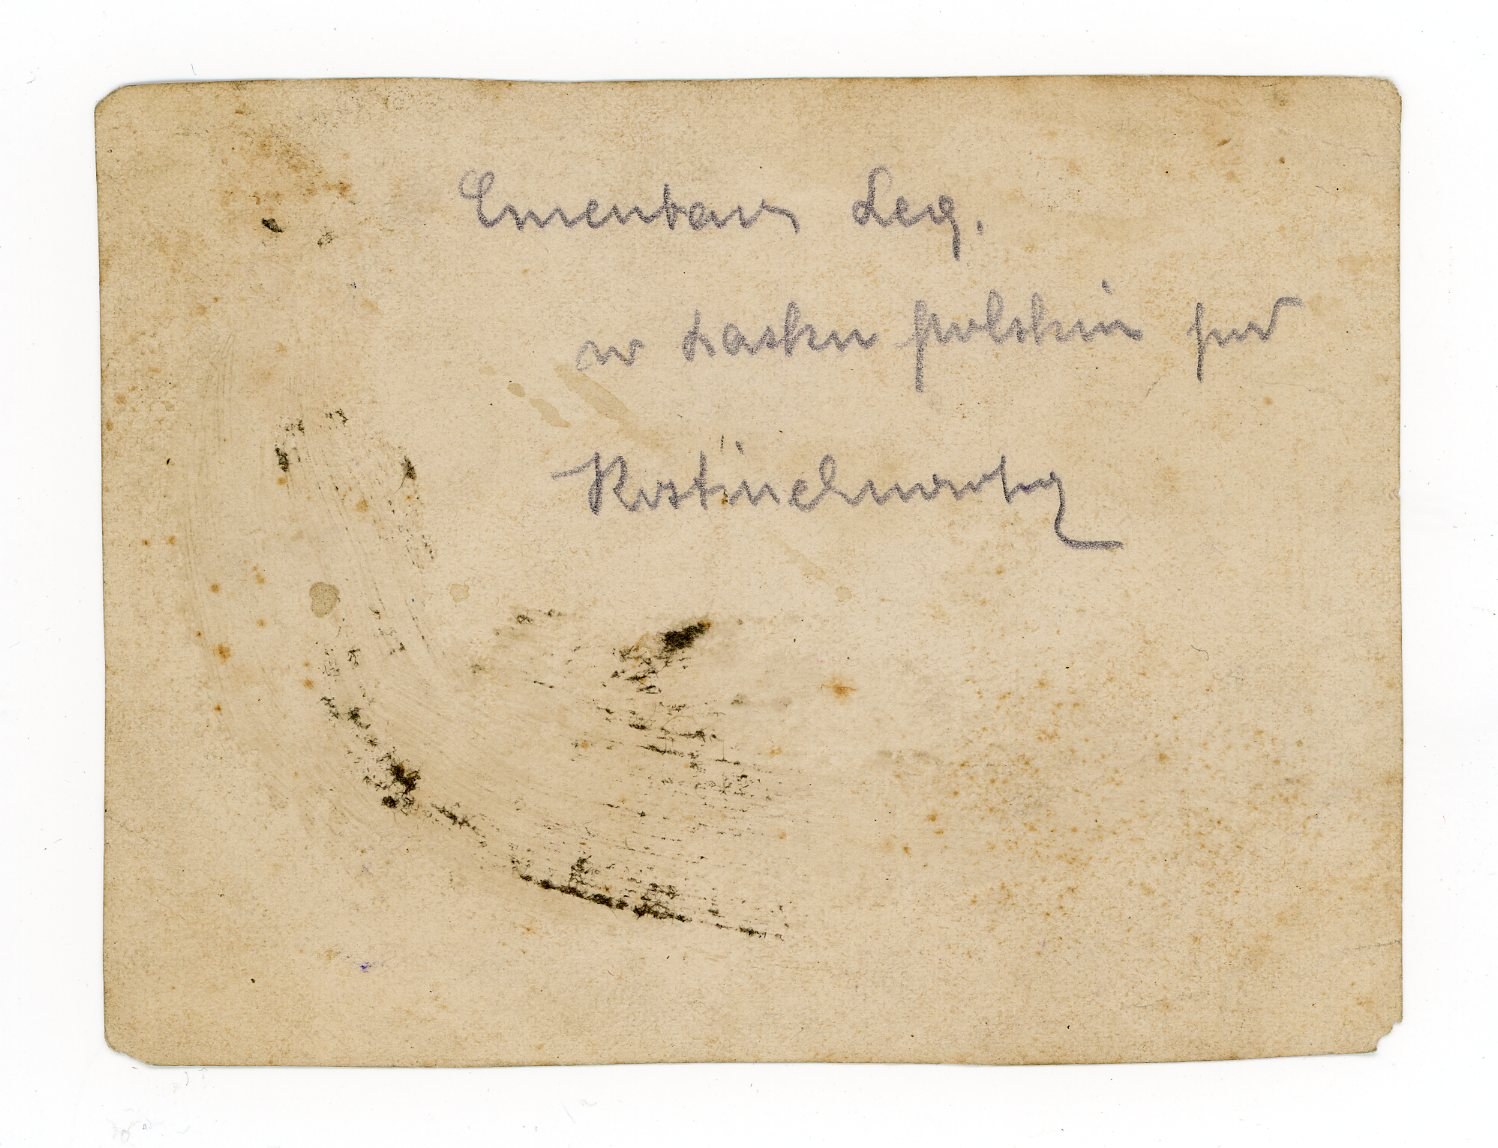 Cmentarz Leg.
w Lasku polskim pod
Kostiuchnówką